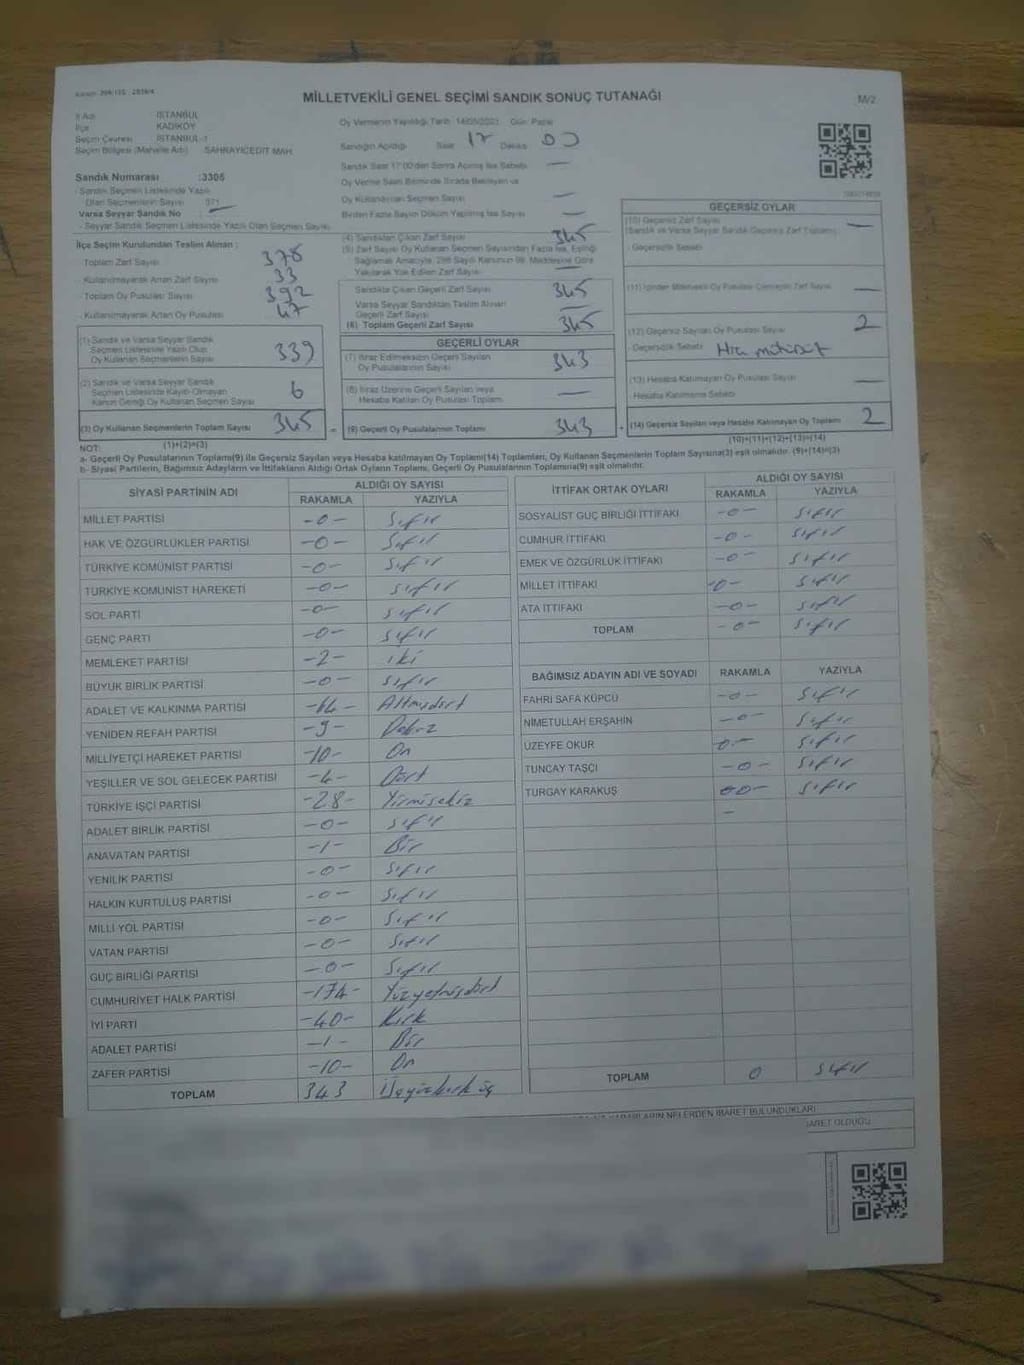 MİLLETVEKİLİ GENEL SEÇİMİ SANDIK SONUÇ TUTANAĞI
M/2
İl Adı İSTANBUL
İlçe KADIKÖY
Seçim Çevresi İSTANBUL-1
Seçim Bölgesi (Mahalle Adı) SAHRAYICEDİT MAH.
Oy Vermenin Yapıldığı Tarih: 14/05/2023 Gün: Pazar
Sandığın Açıldığı Saat 17 Dakika 00
Sandık Saat 17:00'den Sonra Açılmış İse Sebebi —
Oy Verme Saati Bitiminde Sırada Bekleyen ve
Oy Kullandırılan Seçmen Sayısı —
Birden Fazla Sayım Döküm Yapılmış İse Sayısı —
Sandık Numarası :3305
- Sandık Seçmen Listesinde Yazılı
Olan Seçmenlerin Sayısı 371
Varsa Seyyar Sandık No —
- Seyyar Sandık Seçmen Listesinde Yazılı Olan Seçmen Sayısı
İlçe Seçim Kurulundan Teslim Alınan :
- Toplam Zarf Sayısı 378
- Kullanılmayarak Artan Zarf Sayısı 33
- Toplam Oy Pusulası Sayısı 392
- Kullanılmayarak Artan Oy Pusulası 47
(1) Sandık ve Varsa Seyyar Sandık
Seçmen Listesinde Yazılı Olup
Oy Kullanan Seçmenlerin Sayısı 339
(2) Sandık ve Varsa Seyyar Sandık
Seçmen Listesinde Kayıtlı Olmayan
Kanun Gereği Oy Kullanan Seçmen Sayısı 6
(3) Oy Kullanan Seçmenlerin Toplam Sayısı 345
(1)+(2)=(3)
(4) Sandıktan Çıkan Zarf Sayısı 345
(5) Zarf Sayısı Oy Kullanan Seçmen Sayısından Fazla İse, Eşitliği
Sağlamak Amacıyla, 298 Sayılı Kanunun 98. Maddesine Göre
Yakılarak Yok Edilen Zarf Sayısı —
Sandıkta Çıkan Geçerli Zarf Sayısı 345
Varsa Seyyar Sandıktan Teslim Alınan
Geçerli Zarf Sayısı —
(6) Toplam Geçerli Zarf Sayısı 345
GEÇERLİ OYLAR
(7) İtiraz Edilmeksizin Geçerli Sayılan
Oy Pusulalarının Sayısı 343
(8) İtiraz Üzerine Geçerli Sayılan veya
Hesaba Katılan Oy Pusulası Toplamı —
= (9) Geçerli Oy Pusulalarının Toplamı 343
GEÇERSİZ OYLAR
(10) Geçersiz Zarf Sayısı
(Sandık ve Varsa Seyyar Sandık Geçersiz Zarf Toplamı) —
- Geçersizlik Sebebi
(11) İçinden Milletvekili Oy Pusulası Çıkmayan Zarf Sayısı —
(12) Geçersiz Sayılan Oy Pusulası Sayısı 2
- Geçersizlik Sebebi
(13) Hesaba Katılmayan Oy Pusulası Sayısı —
- Hesaba Katılmama Sebebi
+ (14) Geçersiz Sayılan veya Hesaba Katılmayan Oy Toplamı 2
(10)+(11)+(12)+(13)=(14)
NOT:
a- Geçerli Oy Pusulalarının Toplamı(9) ile Geçersiz Sayılan veya Hesaba katılmayan Oy Toplamı(14) Toplamları, Oy Kullanan Seçmenlerin Toplam Sayısına(3) eşit olmalıdır. (9)+(14)=(3)
b- Siyasi Partilerin, Bağımsız Adayların ve İttifakların Aldığı Ortak Oyların Toplamı, Geçerli Oy Pusulalarının Toplamına(9) eşit olmalıdır.
SİYASİ PARTİNİN ADI ALDIĞI OY SAYISI
RAKAMLA YAZIYLA
MİLLET PARTİSİ -0- Sıfır
HAK VE ÖZGÜRLÜKLER PARTİSİ -0- Sıfır
TÜRKİYE KOMÜNİST PARTİSİ -0- Sıfır
TÜRKİYE KOMÜNİST HAREKETİ -0- Sıfır
SOL PARTİ -0- Sıfır
GENÇ PARTİ -0- Sıfır
MEMLEKET PARTİSİ -2- iki
BÜYÜK BİRLİK PARTİSİ -0- Sıfır
ADALET VE KALKINMA PARTİSİ -64- Altmışdört
YENİDEN REFAH PARTİSİ -9- Dokuz
MİLLİYETÇİ HAREKET PARTİSİ -10- On
YEŞİLLER VE SOL GELECEK PARTİSİ -4- Dört
TÜRKİYE İŞÇİ PARTİSİ -28- Yirmisekiz
ADALET BİRLİK PARTİSİ -0- Sıfır
ANAVATAN PARTİSİ -1- Bir
YENİLİK PARTİSİ -0- Sıfır
HALKIN KURTULUŞ PARTİSİ -0- Sıfır
MİLLİ YOL PARTİSİ -0- Sıfır
VATAN PARTİSİ -0- Sıfır
GÜÇ BİRLİĞİ PARTİSİ -0- Sıfır
CUMHURİYET HALK PARTİSİ -174- Yüzyetmişdört
İYİ PARTİ -40- Kırk
ADALET PARTİSİ -1- Bir
ZAFER PARTİSİ -10- On
TOPLAM 343 Üçyüzkırk üç
İTTİFAK ORTAK OYLARI ALDIĞI OY SAYISI
RAKAMLA YAZIYLA
SOSYALİST GÜÇ BİRLİĞİ İTTİFAKI -0- Sıfır
CUMHUR İTTİFAKI -0- Sıfır
EMEK VE ÖZGÜRLÜK İTTİFAKI -0- Sıfır
MİLLET İTTİFAKI -0- Sıfır
ATA İTTİFAKI -0- Sıfır
TOPLAM -0- Sıfır
BAĞIMSIZ ADAYIN ADI VE SOYADI RAKAMLA YAZIYLA
FAHRİ SAFA KÜPCÜ -0- Sıfır
NİMETULLAH ERŞAHİN -0- Sıfır
ÜZEYFE OKUR 0- Sıfır
TUNCAY TAŞÇI -0- Sıfır
TURGAY KARAKUŞ 00- Sıfır
–
TOPLAM 0 Sıfır
NELERDEN İBARET BULUNDUKLARI
İBARET OLDUĞU